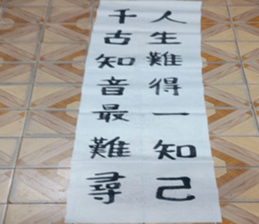 人生難得一知己
千古知音最難尋